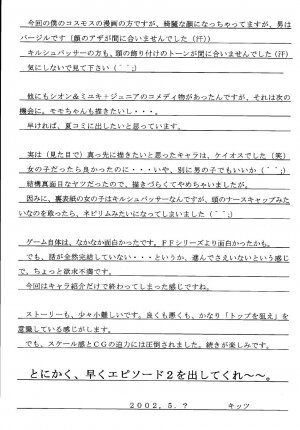 今回の僕のコスモスの漫画の方ですが、綺麗な顔になっちゃってますが、男は
バージルです（顔のアザが間に合いませんでした（汗））
キルシュバッサーの方も、頭の飾り付けのトーンが間に合いませんでした（汗）
気にしないで見て下さい（＾＾；）
他にもシオン＆ミユキ＋ジュニアのコメディ物があったんですが、それは次の
機会に。モモちゃんも描きたいし・・・。
早ければ、夏コミに出したいと思っています。
実は（見た目で）真っ先に描きたいと思ったキャラは、ケイオスでした（笑）
女の子だったら良かったのに・・・いや、別に男の子でもいいか（＾＾；）
結構真面目なヤツだったので、描きづらくてやめちゃいましたが。
因みに、裏表紙の女の子はキルシュバッサーなんですが、頭のナースキャップみた
いなのを取ったら、ネピリムみたいになってしまいました（＾＾；）
ゲーム自体は、なかなか面白かったです。ＦＦシリーズより面白かったかも。
でも、話が全然完結していない・・・というか、進んでさえいないという感じ
で。ちょっと欲求不満です。
今回はキャラ紹介だけで終わってしまった感じですね。
ストーリーも、少々小難しいです。良くも悪くも、かなり「トップを狙え」を
意識している感じがします。
でも、スケール感とＣＧの迫力には圧倒されました。続きが楽しみです。
とにかく、早くエピソード２を出してくれ～～。
２００２，５．？　キッツ